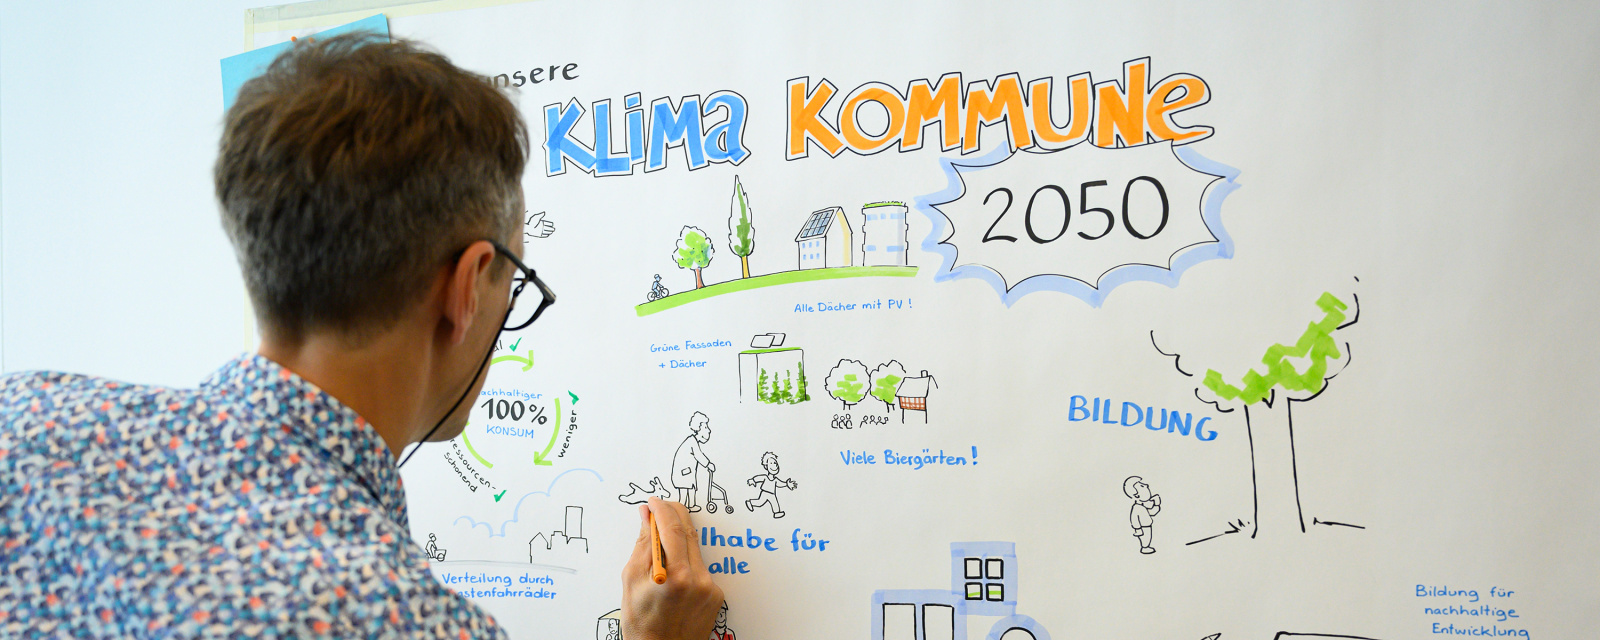 unsere
KLIMA KOMMUNE
2050
Alle Dächer mit PV !
Grüne Fassaden
+ Dächer
Viele Biergärten!
nachhaltiger
100%
KONSUM
weniger
ressourcen-
schonend
BILDUNG
lhabe für
alle
Verteilung durch
stenfahrräder
Bildung für
nachhaltige
Entwicklung